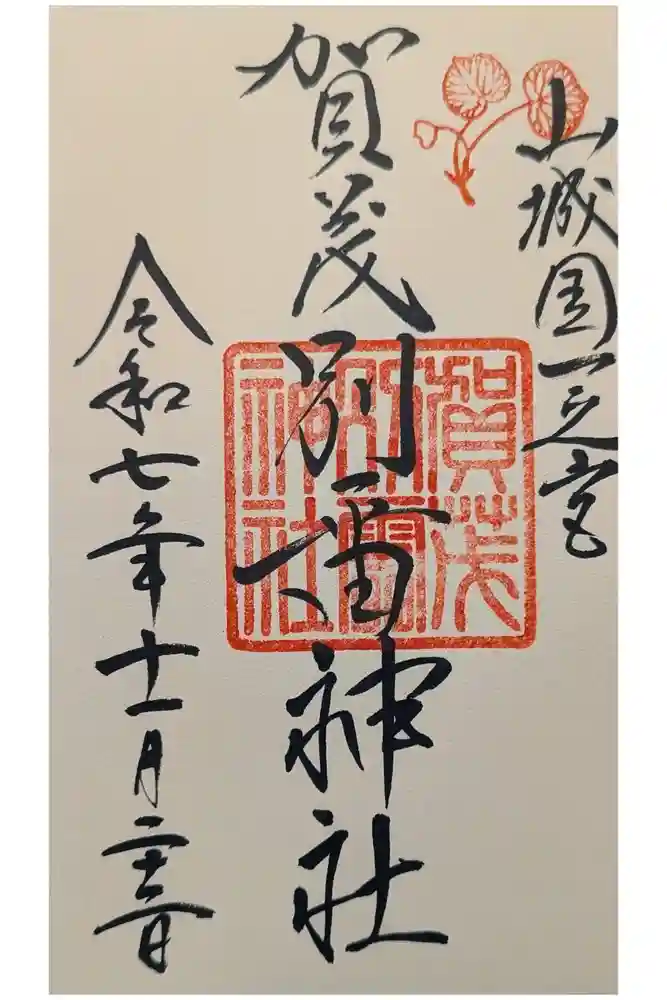 山城国一之宮
賀茂別雷神社
令和七年十一月二十二日
賀茂
別雷
神社